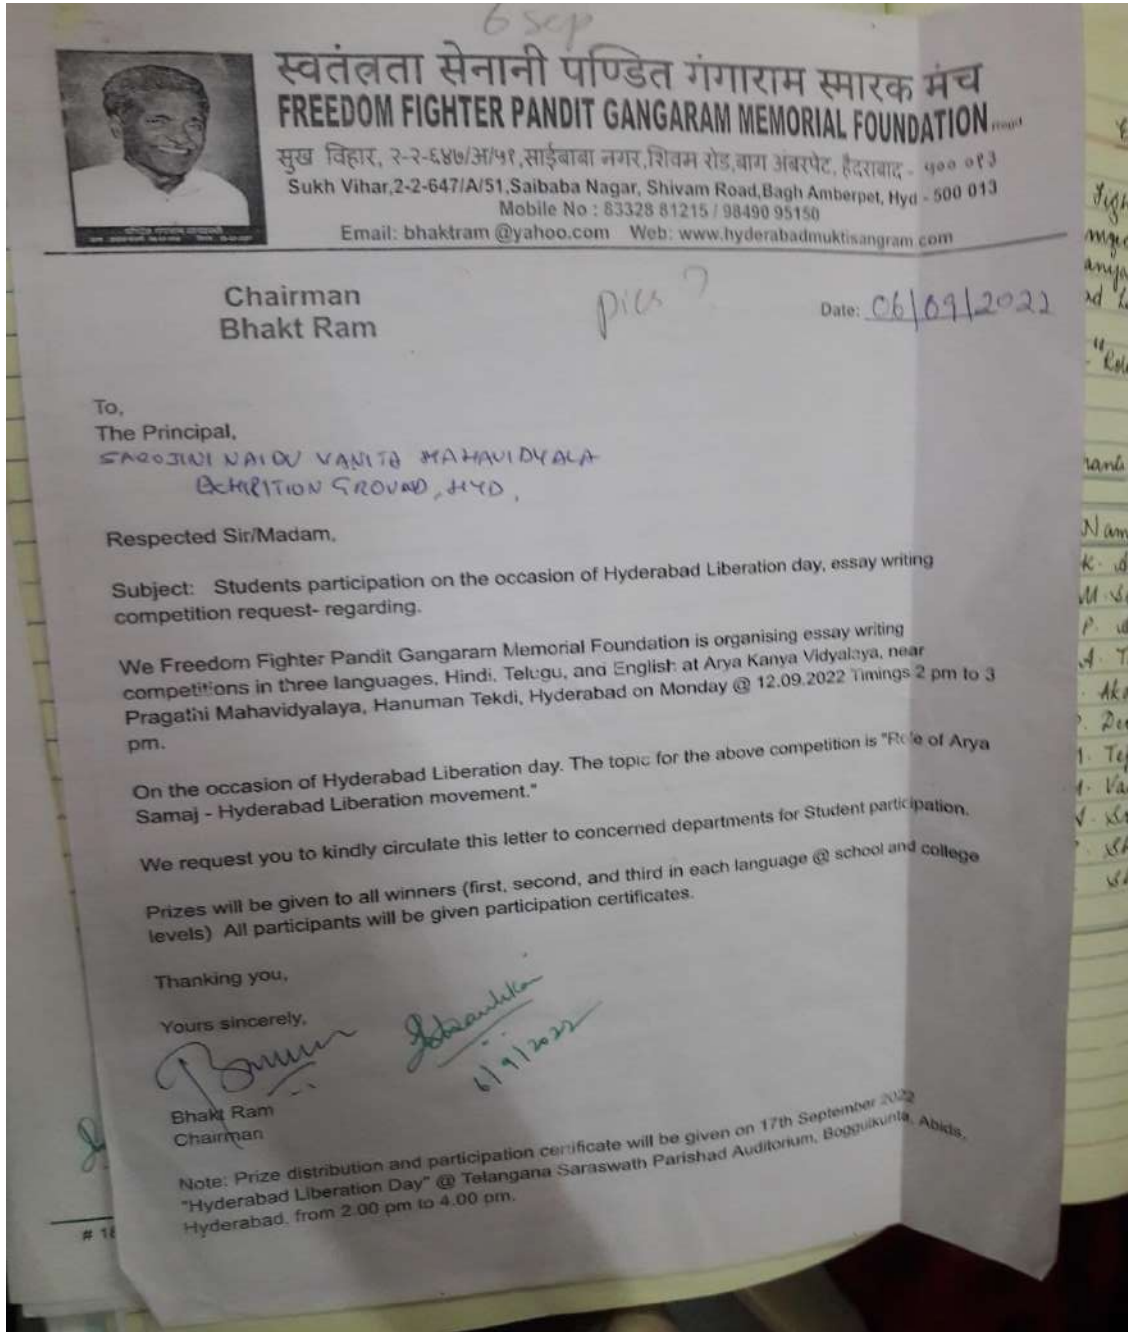 6 Sep
स्वतंत्रता सेनानी पण्डित गंगाराम स्मारक मंच
FREEDOM FIGHTER PANDIT GANGARAM MEMORIAL FOUNDATION
सुख विहार, २-२-६४७/अ/५१,साईबाबा नगर,शिवम रोड,बाग अंबरपेट, हैदराबाद - ५०० ०१३
Sukh Vihar,2-2-647/A/51,Saibaba Nagar, Shivam Road,Bagh Amberpet, Hyd - 500 013
Mobile No : 83328 81215 / 98490 95150
Email: bhaktram @yahoo.com Web: www.hyderabadmuktisangram.com
Chairman
Bhakt Ram
pics ?
Date: 06/09/2022
To,
The Principal,
SAROJINI NAIDU VANITA MAHAVIDYALA
EXHIBITION GROUND, HYD,
Respected Sir/Madam,
Subject: Students participation on the occasion of Hyderabad Liberation day, essay writing
competition request- regarding.
We Freedom Fighter Pandit Gangaram Memorial Foundation is organising essay writing
competitions in three languages, Hindi, Telugu, and English at Arya Kanya Vidyalaya, near
Pragathi Mahavidyalaya, Hanuman Tekdi, Hyderabad on Monday @ 12.09.2022 Timings 2 pm to 3
pm.
On the occasion of Hyderabad Liberation day. The topic for the above competition is "Role of Arya
Samaj - Hyderabad Liberation movement."
We request you to kindly circulate this letter to concerned departments for Student participation.
Prizes will be given to all winners (first, second, and third in each language @ school and college
levels) All participants will be given participation certificates.
Thanking you,
Yours sincerely,
6/9/2022
Bhakt Ram
Chairman
Note: Prize distribution and participation certificate will be given on 17th September 2022
"Hyderabad Liberation Day" @ Telangana Saraswath Parishad Auditorium, Boggulkunta, Abids,
Hyderabad. from 2.00 pm to 4.00 pm.
# 18